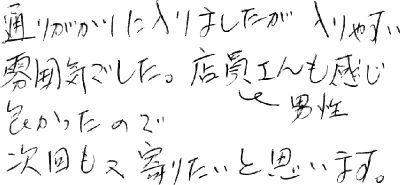 通りがかりに入りましたが 入りやすい
雰囲気でした。店員さんも感じ
男性
良かったので
次回も又寄りたいと思います。